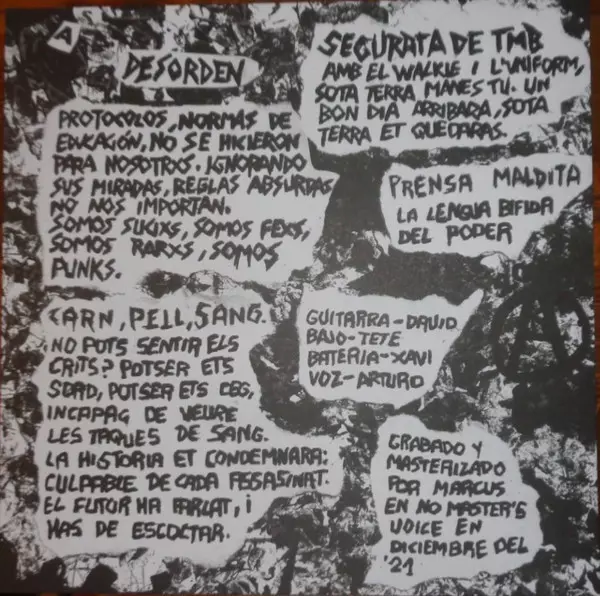 A
DESORDEN
PROTOCOLOS, NORMAS DE
EDUCACIÓN, NO SE HICIERON
PARA NOSOTRXS. IGNORANDO
SUS MIRADAS, REGLAS ABSURDAS
NO NOS IMPORTAN.
SOMOS SUCIXS, SOMOS FEXS,
SOMOS RARXS, SOMOS
PUNKS.
CARN, PELL, SANG.
¿NO POTS SENTIR ELS
CRITS? POTSER ETS
SORD, POTSER ETS CEG,
INCAPAÇ DE VEURE
LES TAQUES DE SANG.
LA HISTORIA ET CONDEMNARA:
CULPABLE DE CADA ASSASINAT.
EL FUTUR HA PARLAT, I
HAS DE ESCOLTAR.
SEGURATA DE TMB
AMB EL WALKIE I L'UNIFORM,
SOTA TERRA MANES TU. UN
BON DIA ARRIBARA, SOTA
TERRA ET QUEDARAS.
PRENSA MALDITA
LA LENGUA BIFIDA
DEL PODER
GUITARRA-DAVID
BAJO-TETE
BATERIA-XAVI
VOZ-ARTURO
A
GRABADO Y
MASTERIZADO
POR MARCUS
EN NO MASTER'S
VOICE EN
DICIEMBRE DEL
'21